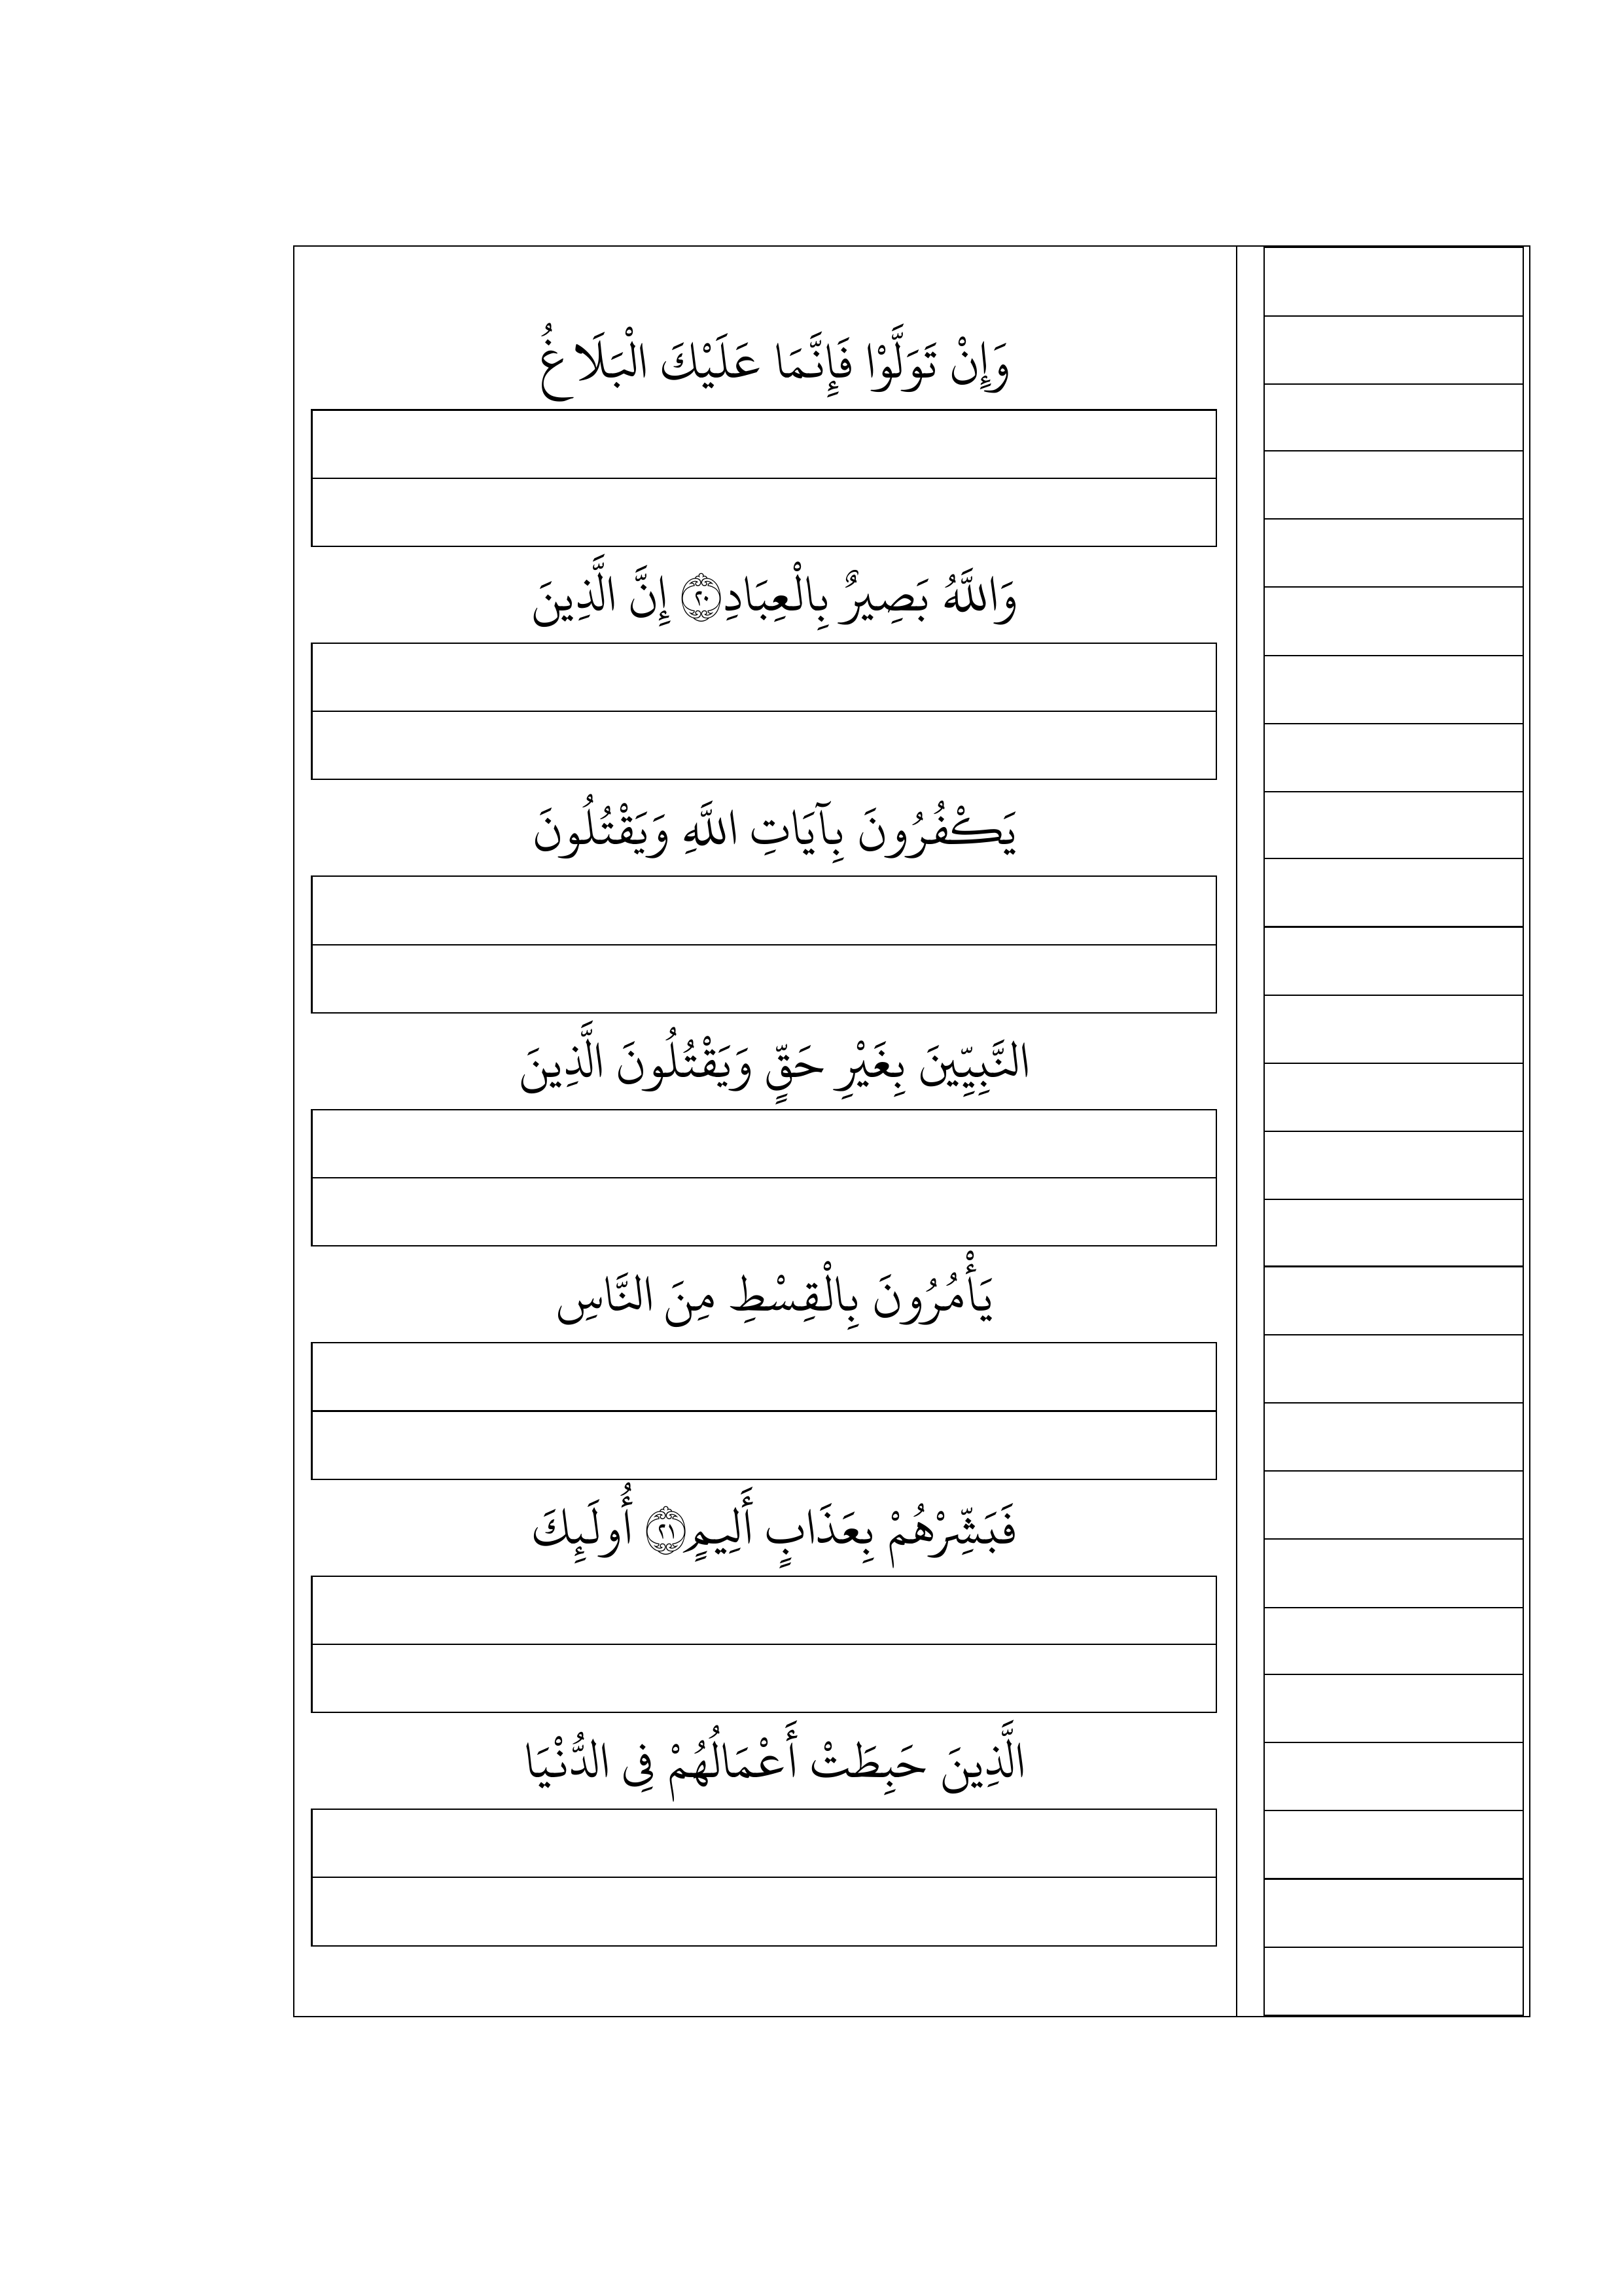 وَإِنْ تَوَلَّوْا فَإِنَّمَا عَلَيْكَ الْبَلَاغُ
وَاللَّهُ بَصِيرٌ بِالْعِبَادِ ۝٢٠ إِنَّ الَّذِينَ
يَكْفُرُونَ بِآيَاتِ اللَّهِ وَيَقْتُلُونَ
النَّبِيِّينَ بِغَيْرِ حَقٍّ وَيَقْتُلُونَ الَّذِينَ
يَأْمُرُونَ بِالْقِسْطِ مِنَ النَّاسِ
فَبَشِّرْهُمْ بِعَذَابٍ أَلِيمٍ ۝٢١ أُولَـئِكَ
الَّذِينَ حَبِطَتْ أَعْمَالُهُمْ فِى الدُّنْيَا